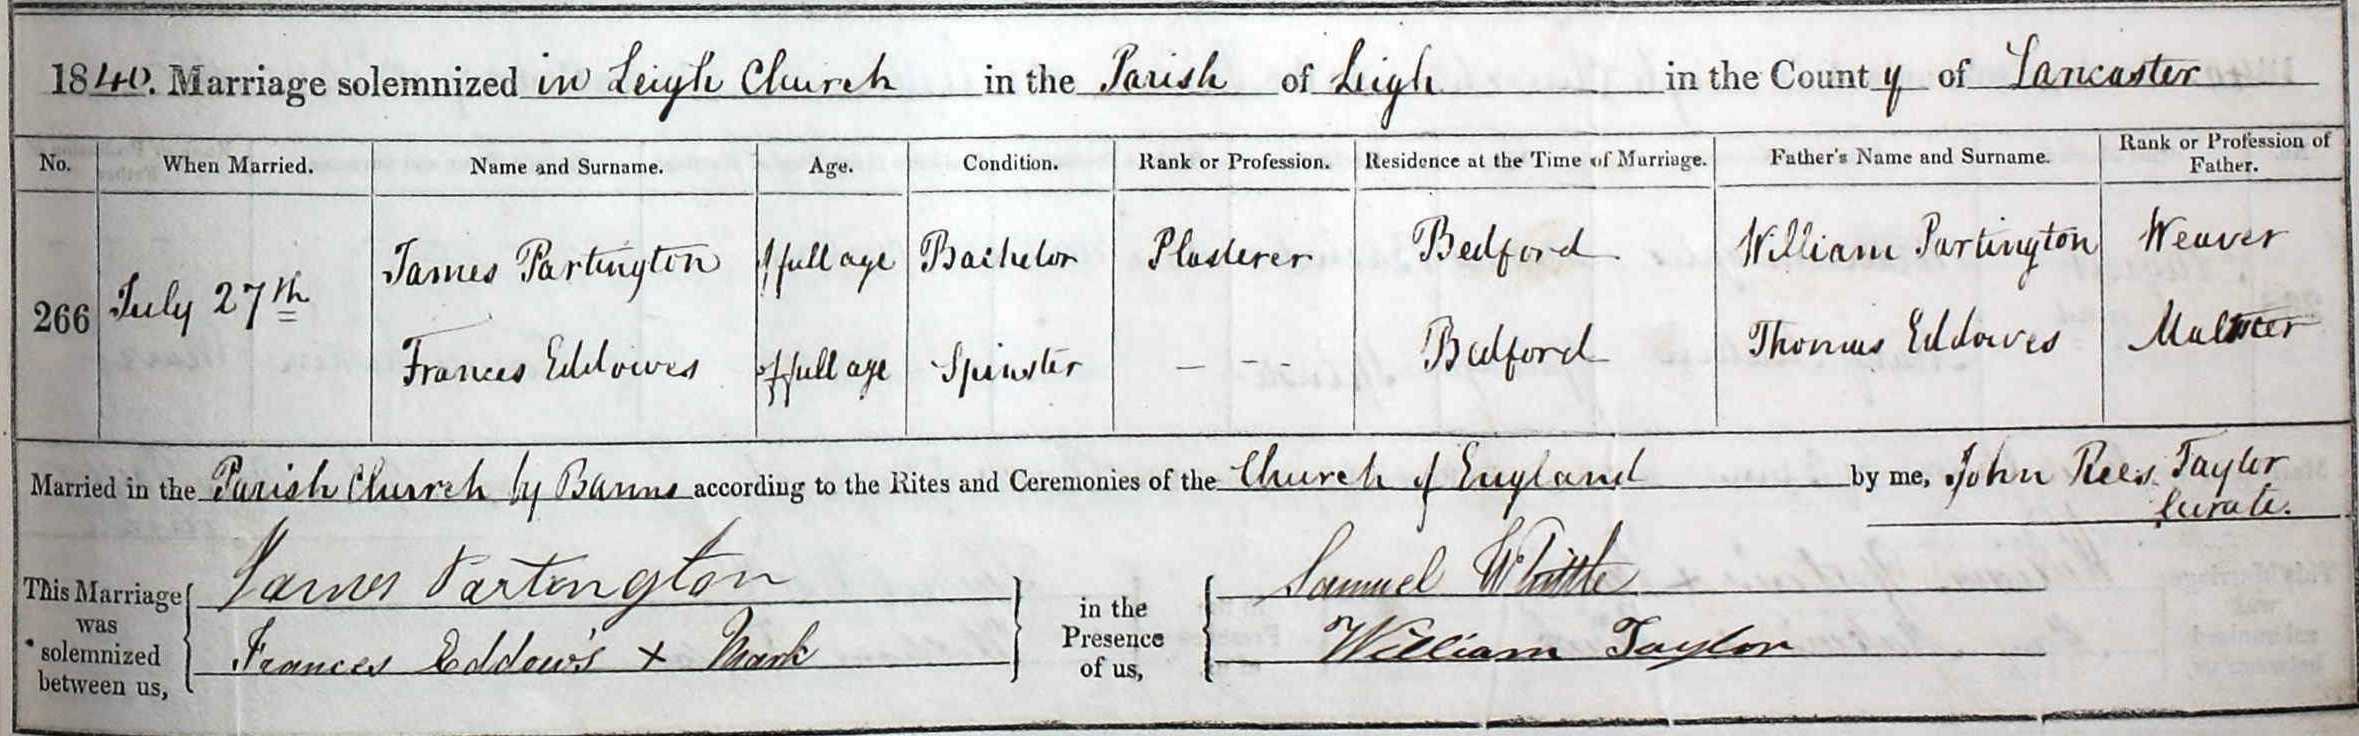 1840. Marriage solemnized in Leigh Church in the Parish of Leigh in the County of Lancaster
No. When Married. Name and Surname. Age. Condition. Rank or Profession. Residence at the Time of Marriage. Father's Name and Surname. Rank or Profession of Father.
266 July 27th
James Partington of full age Bachelor Plasterer Bedford William Partington Weaver
Frances Eddowes of full age Spinster — - - Bedford Thomas Eddowes Maltster
Married in the Parish Church by Banns according to the Rites and Ceremonies of the Church of England by me, John Rees Taylor
Curate.
This Marriage was solemnized between us, James Partington in the Presence of us, Samuel Whittle
Frances Eddow's x Mark William Taylor